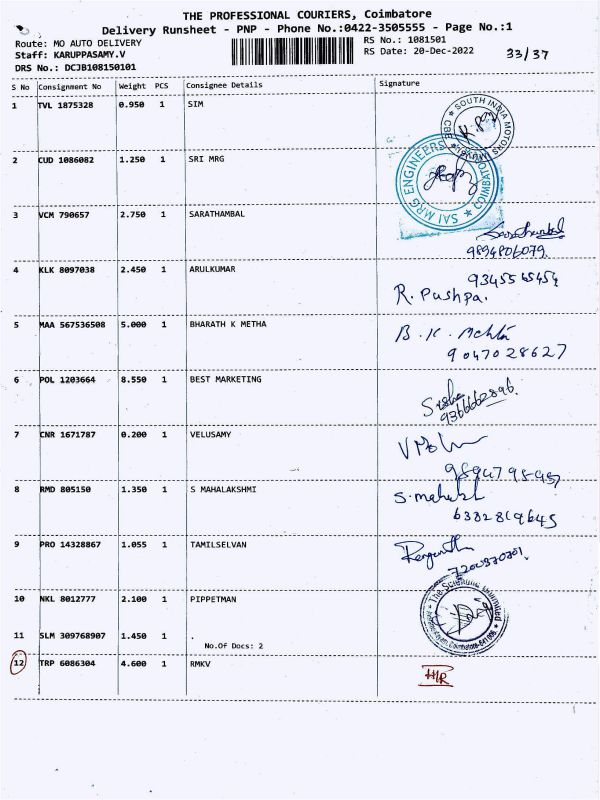 THE PROFESSIONAL COURIERS, Coimbatore
Delivery Runsheet - PNP - Phone No.:0422-3505555 - Page No.:1
Route: MO AUTO DELIVERY RS No.: 1081501
Staff: KARUPPASAMY.V RS Date: 20-Dec-2022 33/37
DRS No.: DCJB108150101
S No Consignment No Weight PCS Consignee Details Signature
1 TVL 1875328 0.950 1 SIM
SOUTH INDIA MOTORS CBE
2 CUD 1086082 1.250 1 SRI MRG
SAI MRG ENGINEERS COIMBATORE
3 VCM 790657 2.750 1 SARATHAMBAL
Sarathambal
9894806079.
4 KLK 8097038 2.450 1 ARULKUMAR
9345545454
R. Pushpa.
5 MAA 567536508 5.000 1 BHARATH K METHA
B. K. Mehta
9047028627
6 POL 1203664 8.550 1 BEST MARKETING
9366662896.
7 CNR 1671787 0.200 1 VELUSAMY
8 RMD 805150 1.350 1 S MAHALAKSHMI
6382819645
9 PRO 14328867 1.055 1 TAMILSELVAN
10 NKL 8012777 2.100 1 PIPPETMAN
11 SLM 309768907 1.450 1 .
No.Of Docs: 2
12 TRP 6086304 4.600 1 RMKV